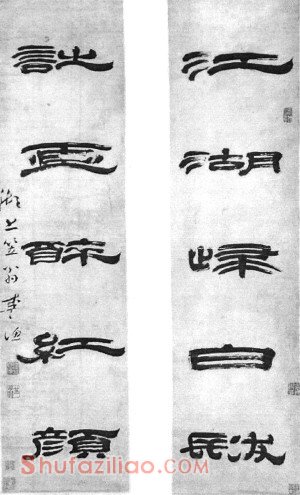 江湖歸白髮
詩畫醉紅顏
湖上笠翁李漁
Shufaziliao.com